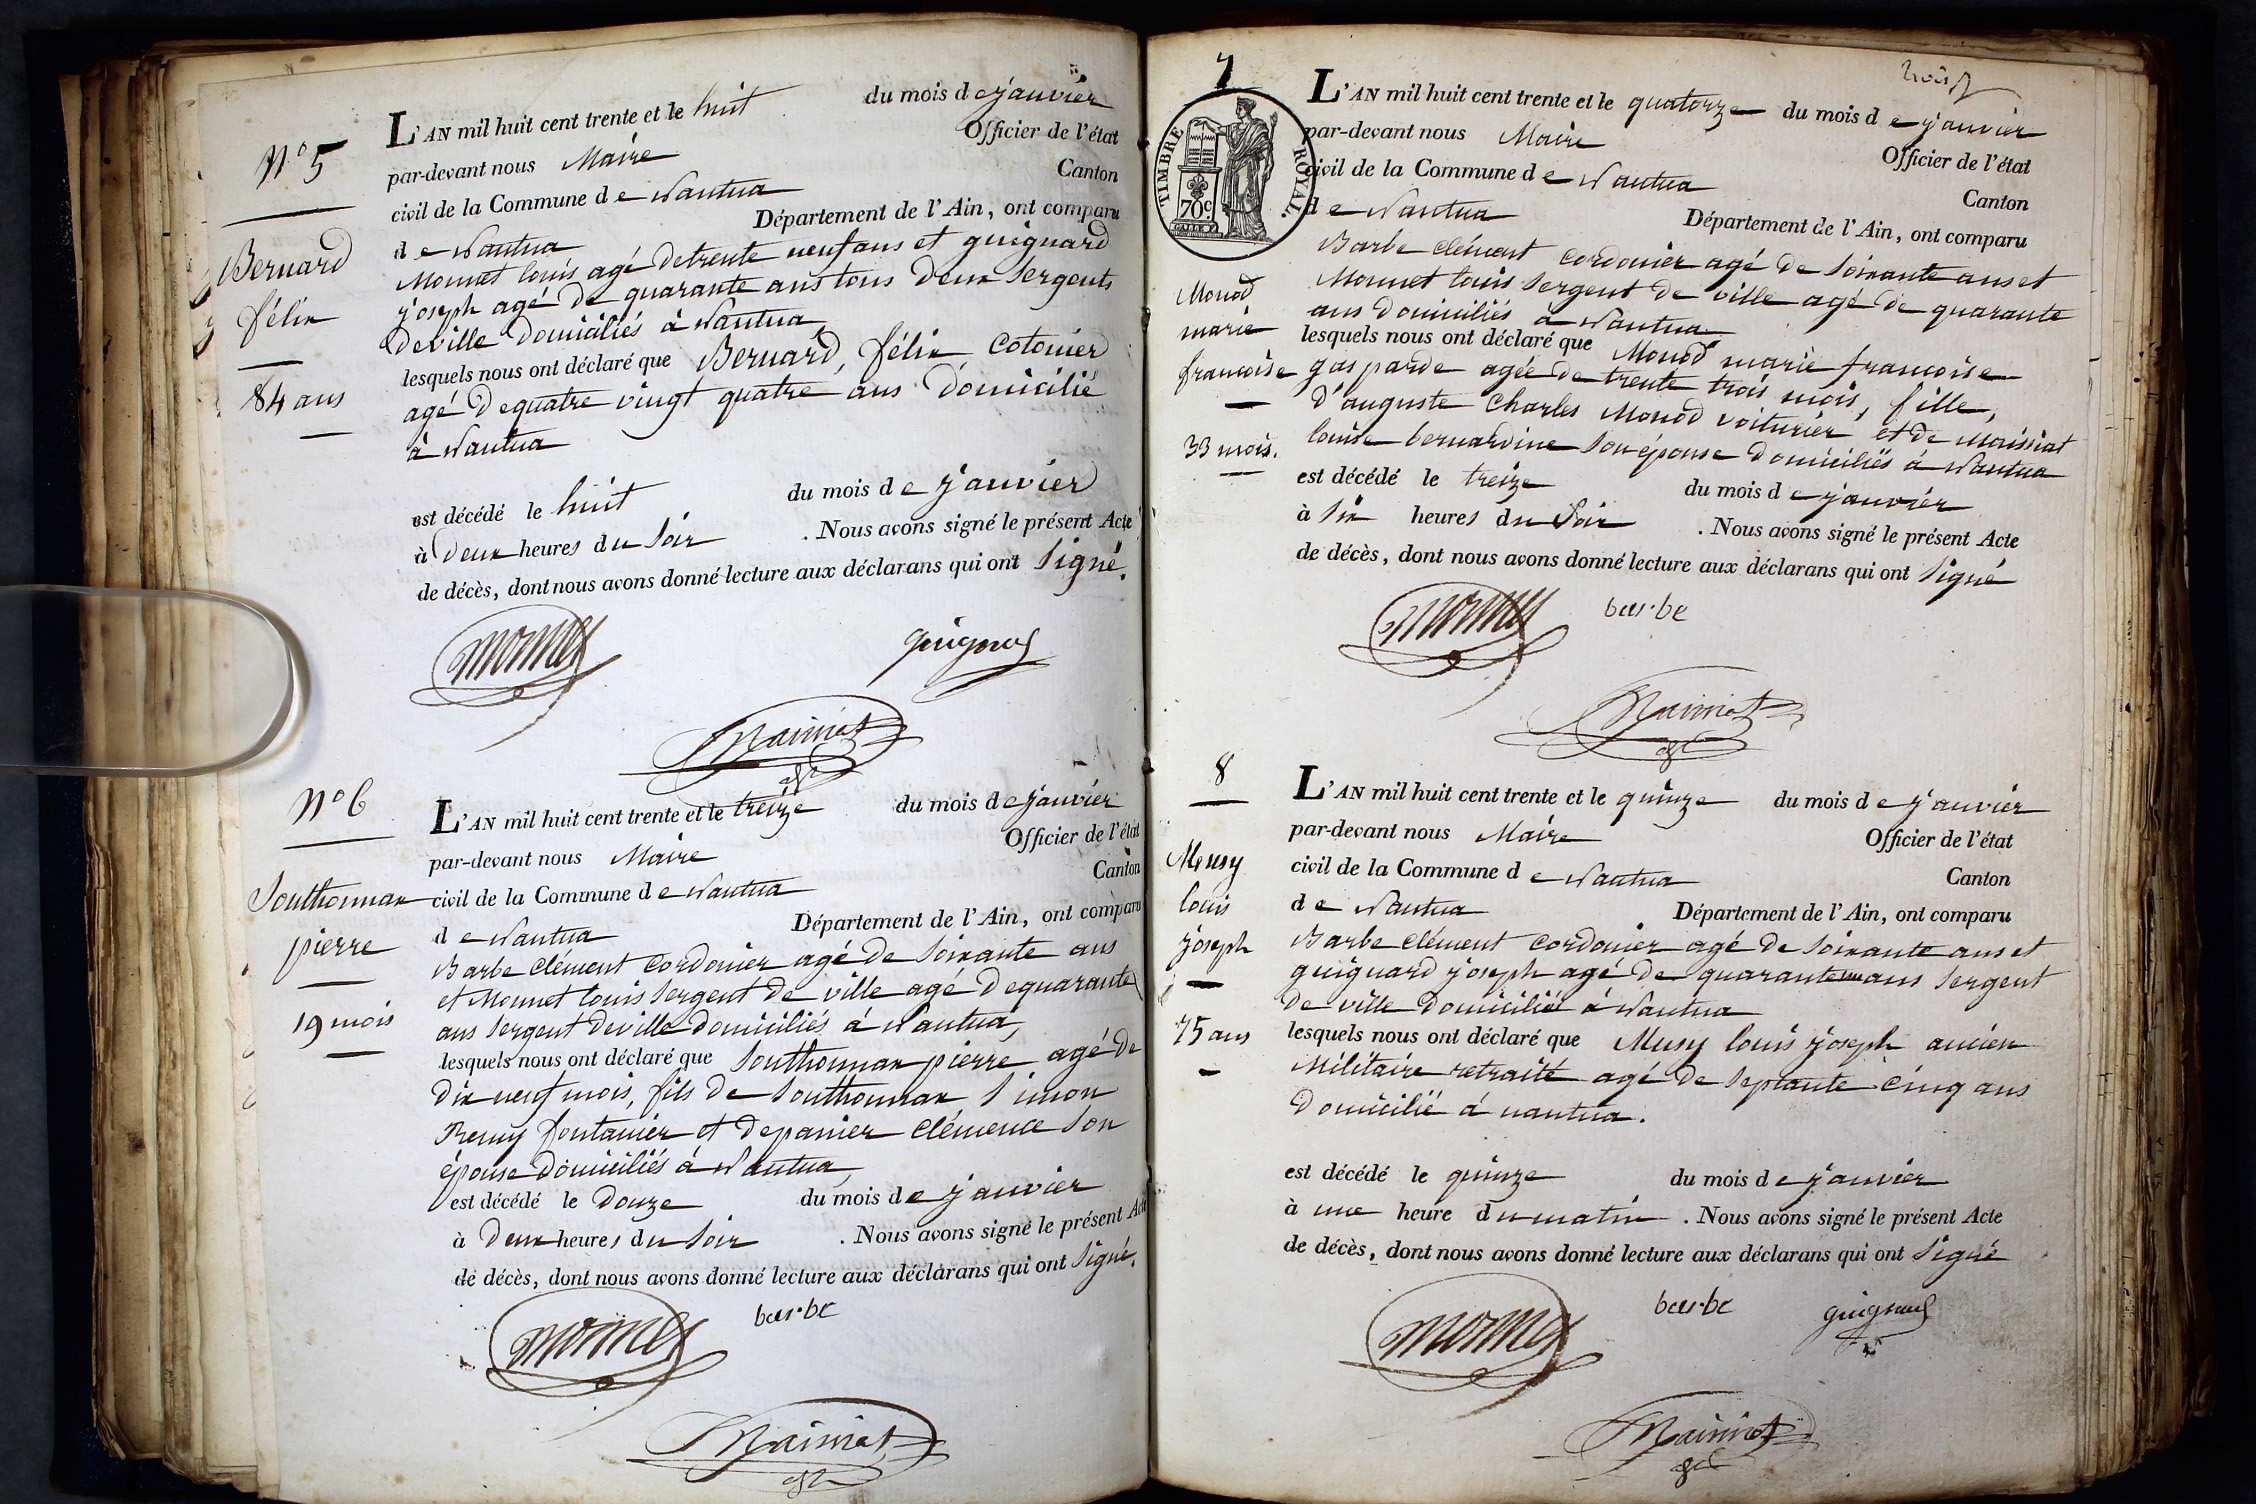 N° 5
Bernard
félix
84 ans
L'AN mil huit cent trente et le huit du mois de janvier
par-devant nous Maire Officier de l'état
civil de la Commune de Nantua Canton
de Nantua Département de l'Ain, ont comparu
Monnet louis agé de trente neuf ans et guignard
joseph agé de quarante ans tous deux sergents
de ville domiciliés à Nantua
lesquels nous ont déclaré que Bernard, félix cotonier
agé de quatre vingt quatre ans domicilié
à Nantua
est décédé le huit du mois de janvier
à deux heures du soir . Nous avons signé le présent Acte
de décès, dont nous avons donné lecture aux déclarans qui ont signé.
monnet guignard
Maissiat
N° 6
Southonnax
pierre
19 mois
L'AN mil huit cent trente et le treize du mois de janvier
par-devant nous Maire Officier de l'état
civil de la Commune de Nantua Canton
de Nantua Département de l'Ain, ont comparu
Barbe clément cordonier agé de soixante ans
et Monnet louis sergent de ville agé de quarante
ans sergent de ville domiciliés à Nantua,
lesquels nous ont déclaré que Southonnax pierre agé de
dix neuf mois, fils de Southonnax Simon
Remy fontanier et de panier clémence son
épouse domiciliés à Nantua,
est décédé le douze du mois de janvier
à deux heures du soir . Nous avons signé le présent Acte
de décès, dont nous avons donné lecture aux déclarans qui ont signé.
monnet barbe
Maissiat
trois
7
TIMBRE ROYAL.
70c
Monod
marie
francoise
33 mois.
L'AN mil huit cent trente et le quatorze du mois de janvier
par-devant nous Maire Officier de l'état
civil de la Commune de Nantua Canton
de Nantua Département de l'Ain, ont comparu
Barbe clément cordonier agé de soixante ans et
Monnet louis sergent de ville agé de quarante
ans domiciliés à Nantua
lesquels nous ont déclaré que Monod marie francoise
gasparde agée de trente trois mois, fille,
d'auguste Charles Monod voiturier et de Maissiat
louise bernardine son épouse domiciliés à Nantua
est décédé le treize du mois de janvier
à six heures du soir . Nous avons signé le présent Acte
de décès, dont nous avons donné lecture aux déclarans qui ont signé
monnet barbe
Maissiat
8
Musy
louis
joseph
75 ans
L'AN mil huit cent trente et le quinze du mois de janvier
par-devant nous Maire Officier de l'état
civil de la Commune de Nantua Canton
de Nantua Département de l'Ain, ont comparu
Barbe clément cordonier agé de soixante ans et
guignard joseph agé de quarante un ans sergent
de ville domiciliés à Nantua
lesquels nous ont déclaré que Musy louis joseph ancien
Militaire retraité agé de septante cinq ans
domicilié à nantua.
est décédé le quinze du mois de janvier
à une heure du matin . Nous avons signé le présent Acte
de décès, dont nous avons donné lecture aux déclarans qui ont signé
monnet barbe guignard
Maissiat